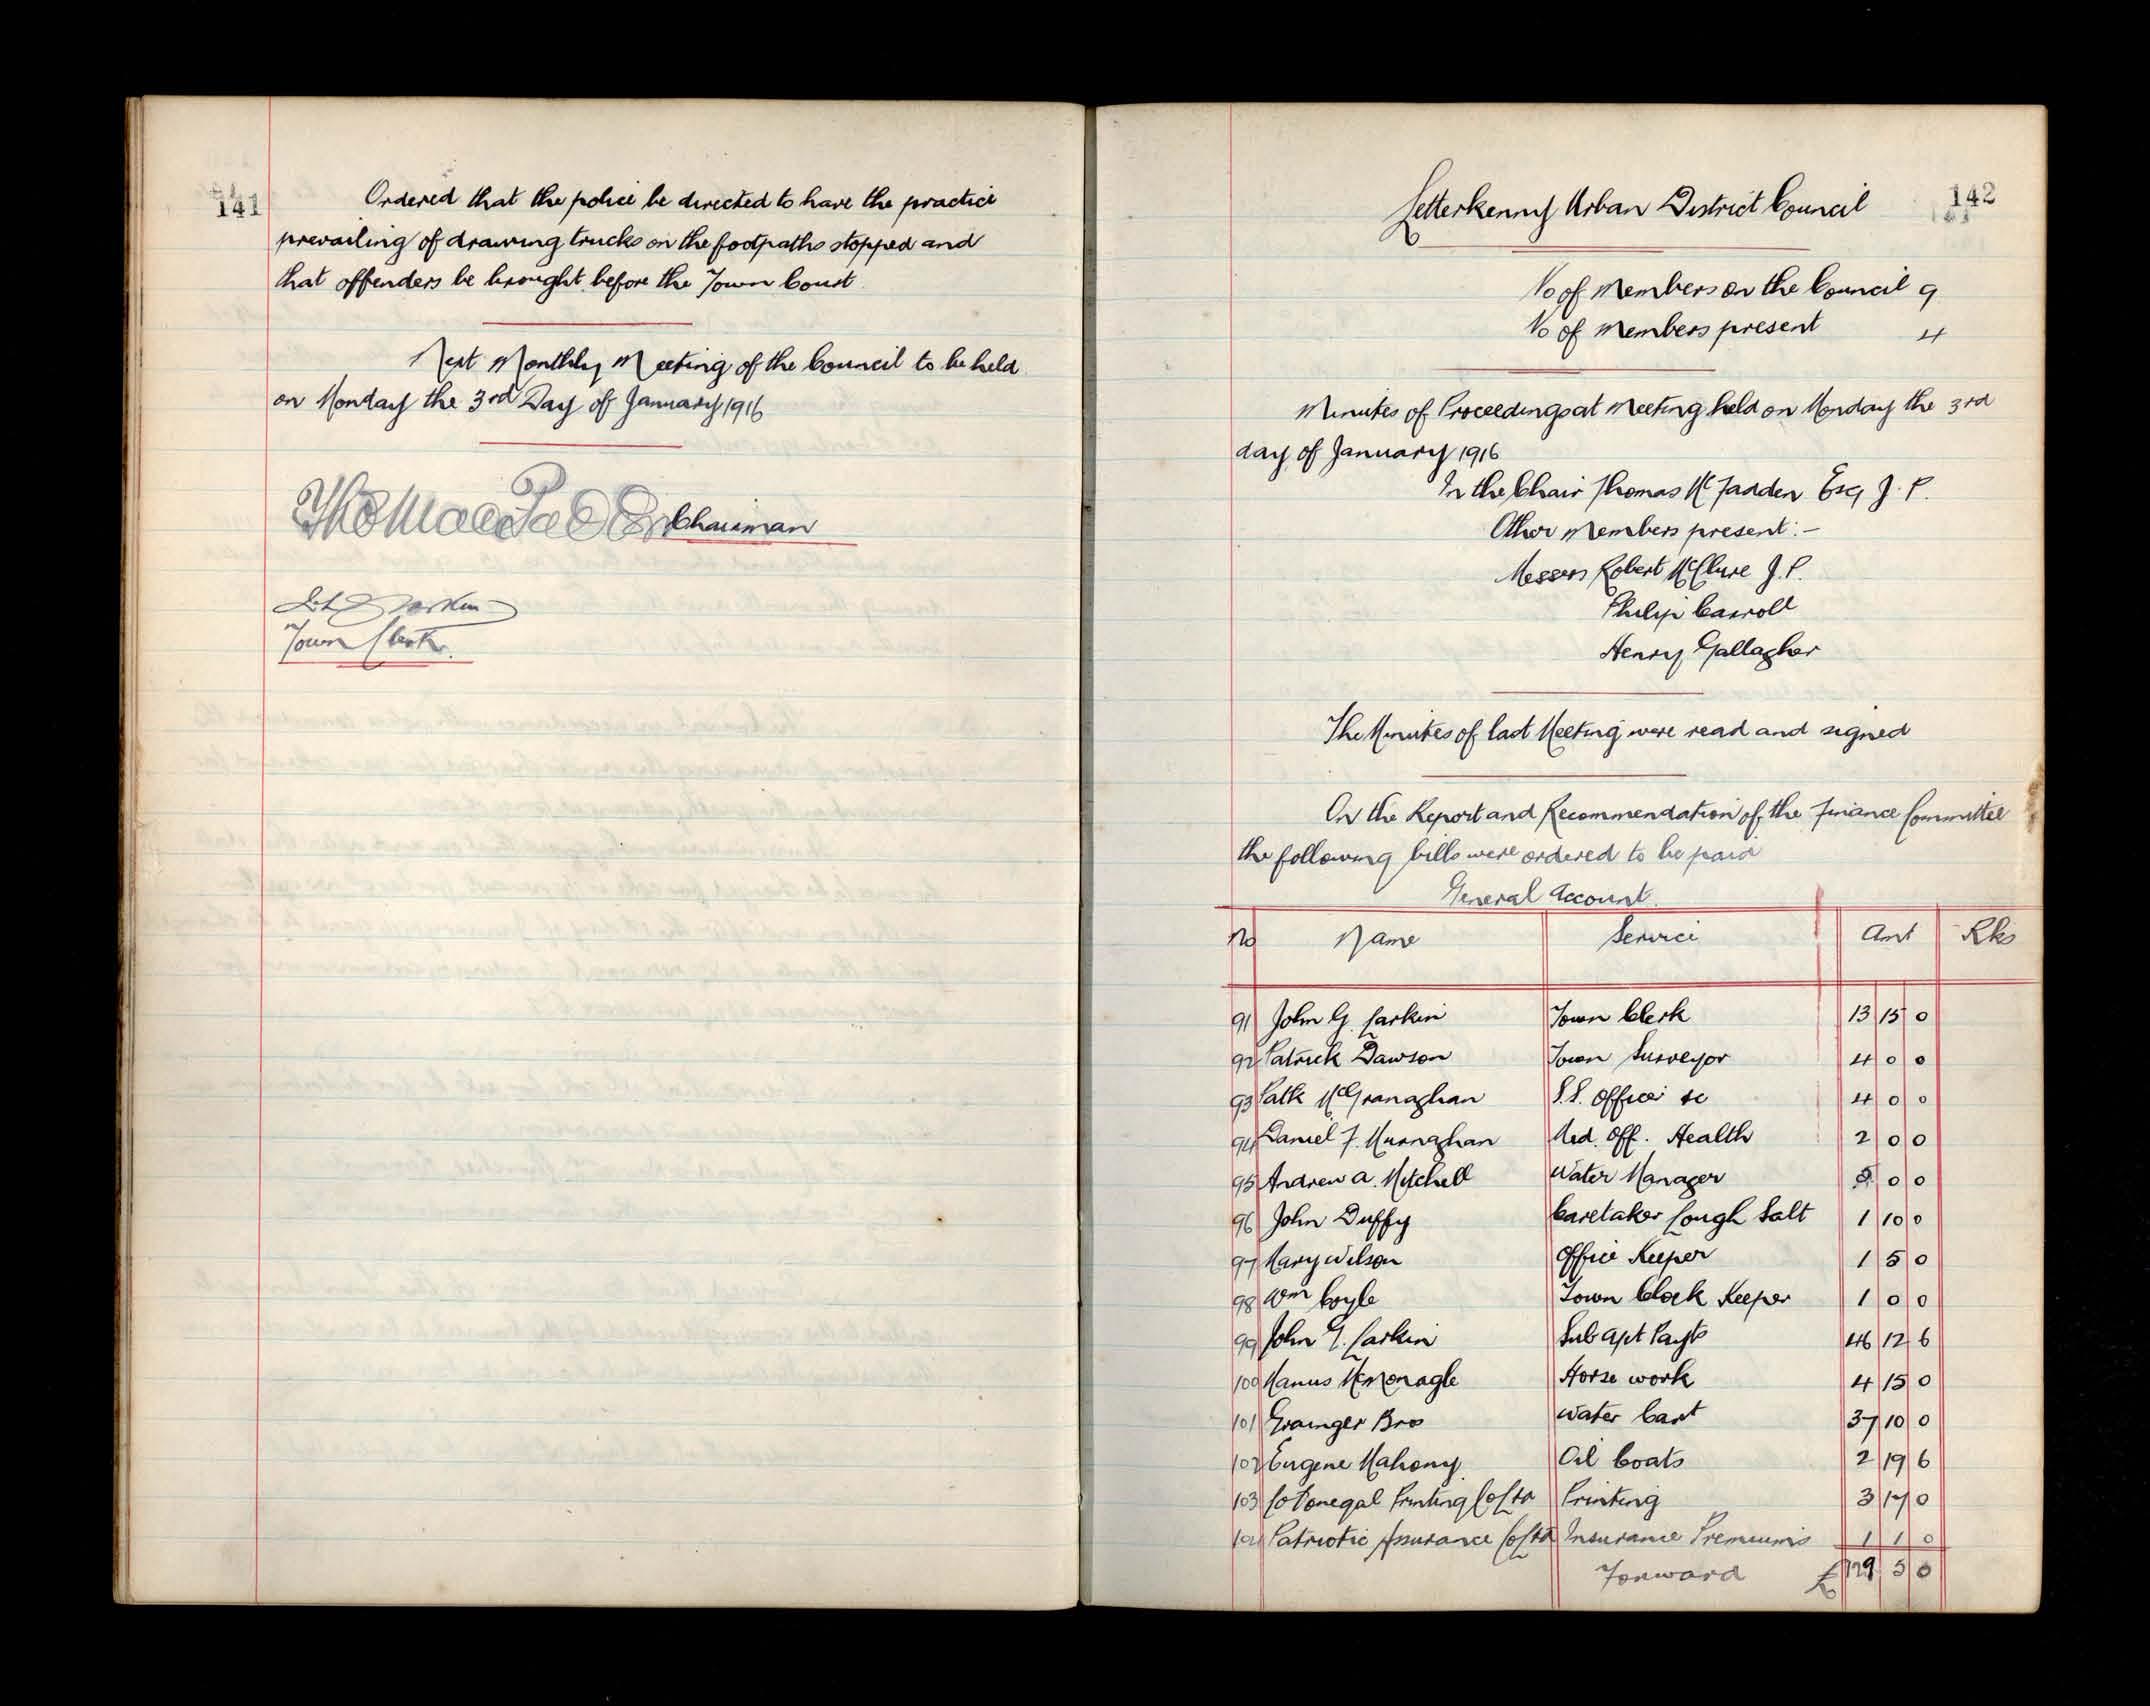 141
Ordered that the police be directed to have the practice
prevailing of drawing trucks on the footpaths stopped and
that offenders be brought before the Town Court
Next Monthly Meeting of the Council to be held
on Monday the 3rd Day of January 1916
Chairman
Town Clerk.
142
Letterkenny Urban District Council
No of Members on the Council 9
No of Members present 4
Minutes of Proceedings at Meeting held on Monday the 3rd
day of January 1916
In the Chair Thomas McFadden Esq J.P.
Other Members present:-
Messers Robert McClure J.P.
Philip Carroll
Henry Gallagher
The Minutes of last Meeting were read and signed
On the Report and Recommendation of the Finance Committee
the following bills were ordered to be paid
General Account.
No Name Service Amt Rks
91 John G. Larkin Town Clerk 13 15 0
92 Patrick Dawson Town Surveyor 4 0 0
93 Patk McGranaghan S.S. Officer &c 4 0 0
94 Daniel F. Murnaghan Med. Off. Health 2 0 0
95 Andrew A. Mitchell Water Manager 5 0 0
96 John Duffy Caretaker Lough Salt 1 10 0
97 Mary Wilson Office Keeper 1 5 0
98 Wm Coyle Town Clock Keeper 1 0 0
99 John G. Larkin Sub Apt Payts 46 12 6
100 Manus McMonagle Horse work 4 15 0
101 Grainger Bros Water Cart 37 10 0
102 Eugene Mahony Oil Coats 2 19 6
103 Co Donegal Printing Co Ltd Printing 3 17 0
104 Patriotic Assurance Co Ltd Insurance Premiums 1 1 0
Forward £ 129 5 0